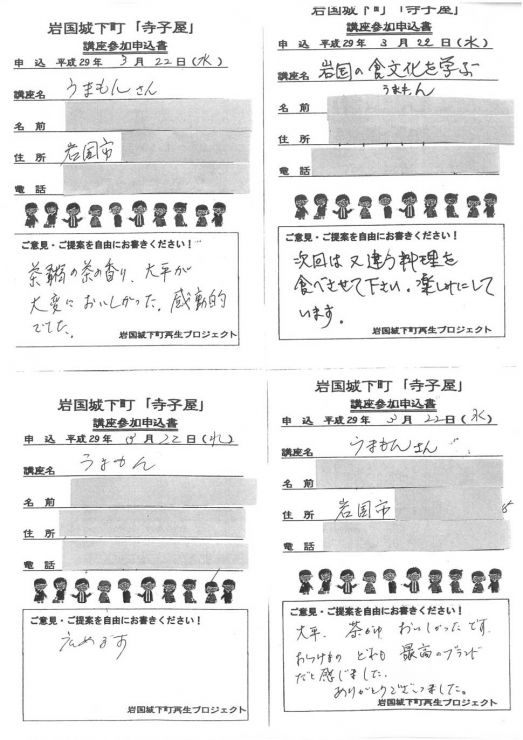 岩国城下町「寺子屋」
講座参加申込書
申 込 平成29年 3 月 22 日(水)
講座名 うまもんさん
名 前
住 所 岩国市
電 話
ご意見・ご提案を自由にお書きください!
茶粥の茶の香り、大平が
大変においしかった。感動的
でした。
岩国城下町再生プロジェクト
岩国城下町「寺子屋」
講座参加申込書
申 込 平成29年 3 月 22 日(水)
講座名 岩国の食文化を学ぶ
うまもん
名 前
住 所
電 話
ご意見・ご提案を自由にお書きください!
次回は又違う料理を
食べさせて下さい。楽しみにして
います。
岩国城下町再生プロジェクト
岩国城下町「寺子屋」
講座参加申込書
申 込 平成29年 3 月 22 日(水)
講座名 うまもん
名 前
住 所
電 話
ご意見・ご提案を自由にお書きください!
広めます
岩国城下町再生プロジェクト
岩国城下町「寺子屋」
講座参加申込書
申 込 平成29年 3 月 22 日(水)
講座名 うまもんさん
名 前
住 所 岩国市
電 話
ご意見・ご提案を自由にお書きください!
大平、茶がゆ おいしかったです。
おつけもの どれも 最高のブランド
だと感じました。
ありがとうございました。
岩国城下町再生プロジェクト